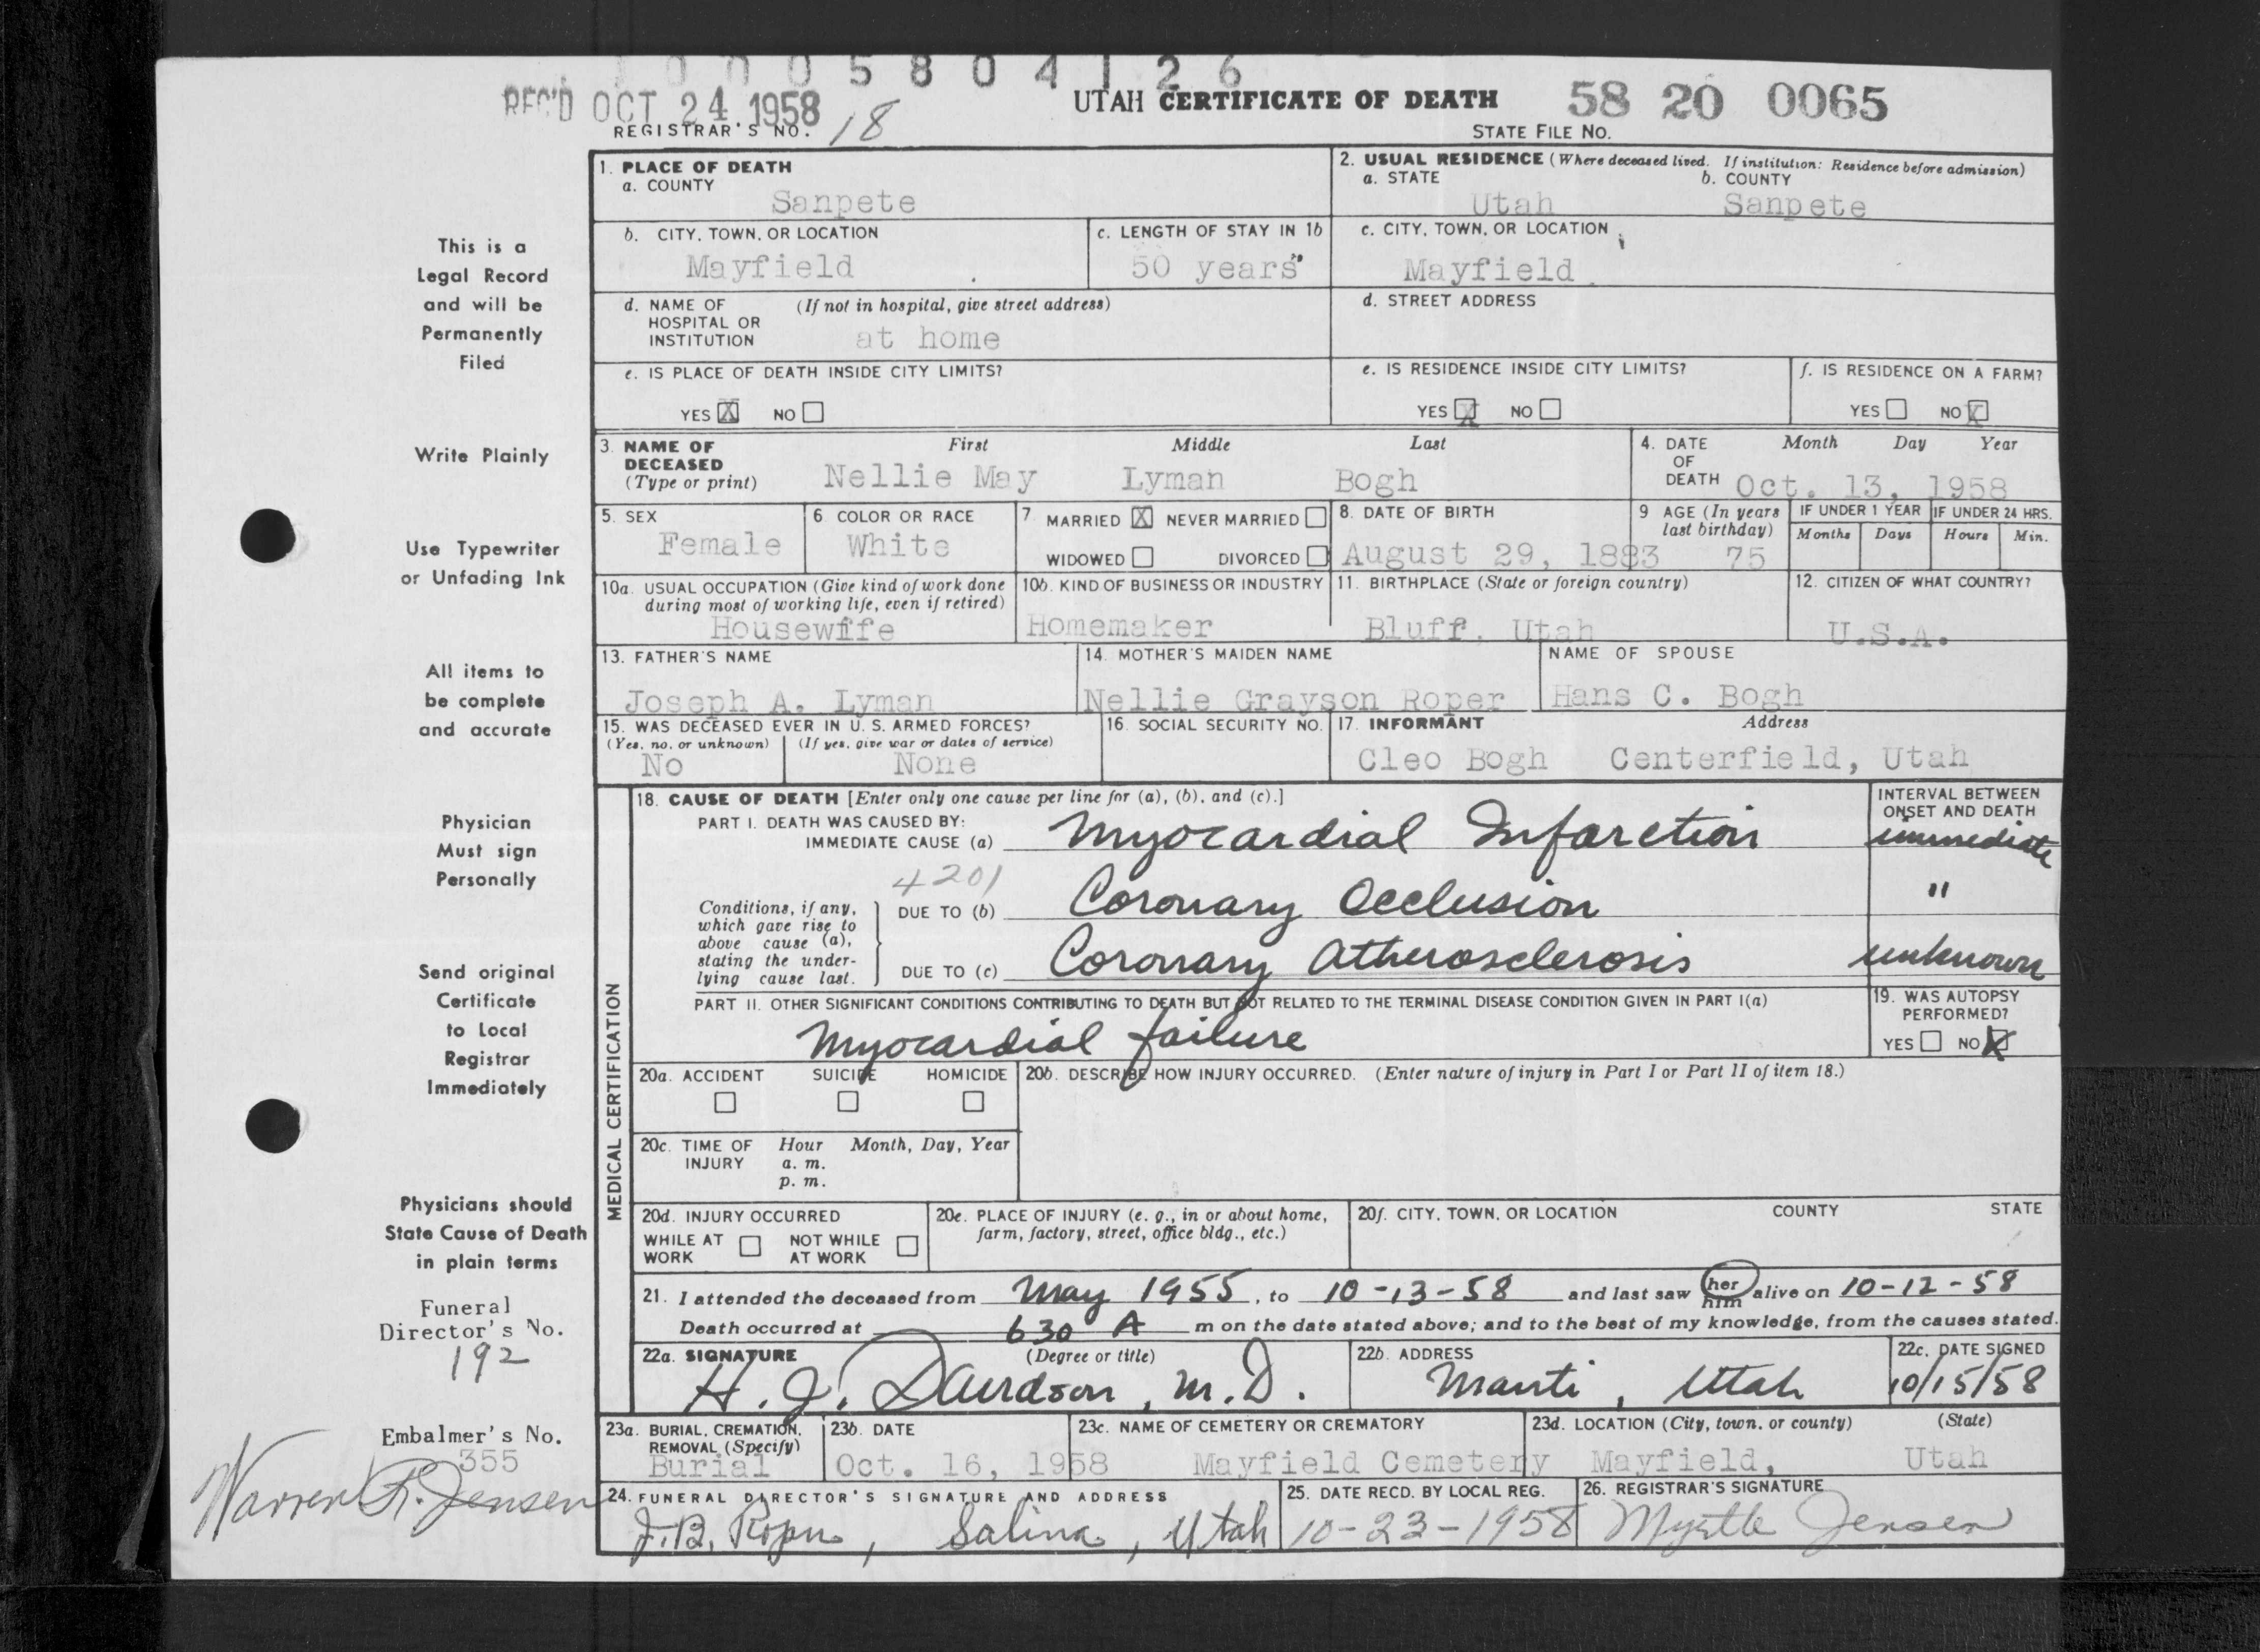 0 0 0 5 8 0 4 1 2 6
REC'D OCT 24 1958
REGISTRAR'S NO. 18
UTAH CERTIFICATE OF DEATH
58 20 0065
STATE FILE NO.
1. PLACE OF DEATH
a. COUNTY
Sanpete
2. USUAL RESIDENCE (Where deceased lived. If institution: Residence before admission)
a. STATE b. COUNTY
Utah Sanpete
b. CITY, TOWN, OR LOCATION
Mayfield
c. LENGTH OF STAY IN 1b
50 years
c. CITY, TOWN, OR LOCATION
Mayfield
d. NAME OF HOSPITAL OR INSTITUTION (If not in hospital, give street address)
at home
d. STREET ADDRESS
e. IS PLACE OF DEATH INSIDE CITY LIMITS?
YES X NO
e. IS RESIDENCE INSIDE CITY LIMITS?
YES X NO
f. IS RESIDENCE ON A FARM?
YES NO X
3. NAME OF DECEASED (Type or print)
First Middle Last
Nellie May Lyman Bogh
4. DATE OF DEATH Month Day Year
Oct. 13, 1958
5. SEX
Female
6 COLOR OR RACE
White
7. MARRIED X NEVER MARRIED
WIDOWED DIVORCED
8. DATE OF BIRTH
August 29, 1883
9 AGE (In years last birthday)
75
IF UNDER 1 YEAR IF UNDER 24 HRS.
Months Days Hours Min.
10a. USUAL OCCUPATION (Give kind of work done during most of working life, even if retired)
Housewife
10b. KIND OF BUSINESS OR INDUSTRY
Homemaker
11. BIRTHPLACE (State or foreign country)
Bluff, Utah
12. CITIZEN OF WHAT COUNTRY?
U.S.A.
13. FATHER'S NAME
Joseph A. Lyman
14. MOTHER'S MAIDEN NAME
Nellie Grayson Roper
NAME OF SPOUSE
Hans C. Bogh
15. WAS DECEASED EVER IN U. S. ARMED FORCES?
(Yes, no, or unknown) (If yes, give war or dates of service)
No None
16. SOCIAL SECURITY NO.
17. INFORMANT Address
Cleo Bogh Centerfield, Utah
MEDICAL CERTIFICATION
18. CAUSE OF DEATH [Enter only one cause per line for (a), (b), and (c).]
INTERVAL BETWEEN ONSET AND DEATH
PART I. DEATH WAS CAUSED BY:
IMMEDIATE CAUSE (a) Myocardial Infarction immediate
4201
Conditions, if any, which gave rise to above cause (a), stating the underlying cause last.
DUE TO (b) Coronary Occlusion "
DUE TO (c) Coronary Atherosclerosis unknown
PART II. OTHER SIGNIFICANT CONDITIONS CONTRIBUTING TO DEATH BUT NOT RELATED TO THE TERMINAL DISEASE CONDITION GIVEN IN PART I(a)
Myocardial failure
19. WAS AUTOPSY PERFORMED?
YES NO X
20a. ACCIDENT SUICIDE HOMICIDE
20b. DESCRIBE HOW INJURY OCCURRED. (Enter nature of injury in Part I or Part II of item 18.)
20c. TIME OF INJURY Hour Month, Day, Year
a. m.
p. m.
20d. INJURY OCCURRED
WHILE AT WORK NOT WHILE AT WORK
20e. PLACE OF INJURY (e. g., in or about home, farm, factory, street, office bldg., etc.)
20f. CITY, TOWN, OR LOCATION COUNTY STATE
21. I attended the deceased from May 1955, to 10-13-58 and last saw her him alive on 10-12-58
Death occurred at 630 A m on the date stated above; and to the best of my knowledge, from the causes stated.
22a. SIGNATURE (Degree or title)
H. J. Davidson, M.D.
22b. ADDRESS
Manti, Utah
22c. DATE SIGNED
10/15/58
23a. BURIAL, CREMATION, REMOVAL (Specify)
Burial
23b. DATE
Oct. 16, 1958
23c. NAME OF CEMETERY OR CREMATORY
Mayfield Cemetery
23d. LOCATION (City, town, or county) (State)
Mayfield, Utah
24. FUNERAL DIRECTOR'S SIGNATURE AND ADDRESS
J.B. Roper, Salina, Utah
25. DATE RECD. BY LOCAL REG.
10-23-1958
26. REGISTRAR'S SIGNATURE
Myrtle Jensen
This is a
Legal Record
and will be
Permanently
Filed
Write Plainly
Use Typewriter
or Unfading Ink
All items to
be complete
and accurate
Physician
Must sign
Personally
Send original
Certificate
to Local
Registrar
Immediately
Physicians should
State Cause of Death
in plain terms
Funeral
Director's No.
192
Embalmer's No.
355
Warren R. Jensen